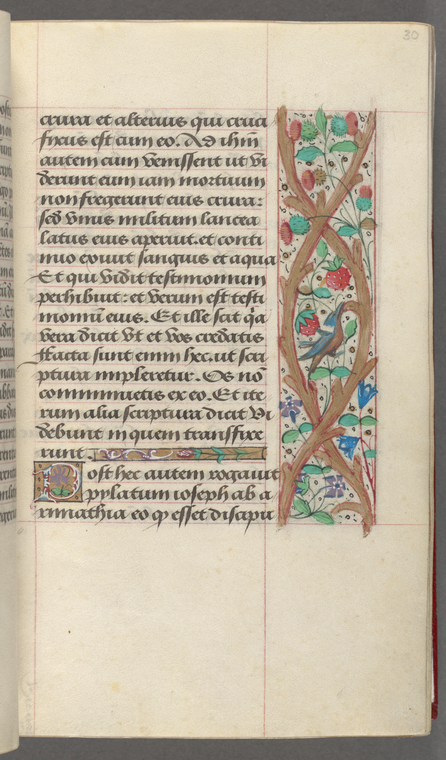 30
crura et alterius qui cruci
fixus est cum eo. Ad ihm̄
autem cum venissent ut vi
derunt eum iam mortuum
non fregerunt eius crura:
sed vnus militum lancea
latus eius aperuit. et conti
nuo exiuit sanguis et aqua
Et qui vidit testimonium
perhibuit: et verum est testi
moniū eius. Et ille scit q̄a
vera dicit vt et vos credatis
ffacta sunt enim hec. ut scri
ptura impleretur. Os nō
comminuetis ex eo. Et ite
rum alia scriptura dicit Vi
debunt in quem transfixe
runt
Post hec autem rogauit
pylatum ioseph ab a
rimathia eo q̄ esset discipu